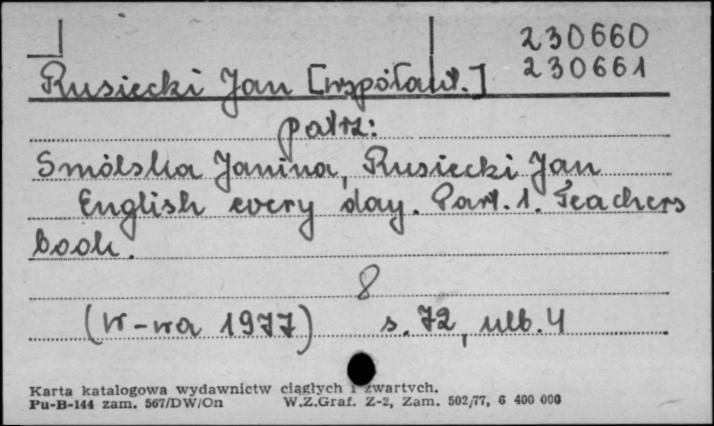 230660
230661
Rusiecki Jan [współaut.]
patrz:
Smólska Janina, Rusiecki Jan
English every day. Part. 1. Teachers
book.
8
(W-wa 1977) s. 72, nlb. 4
Karta katalogowa wydawnictw ciągłych i zwartych.
Pu-B-144 zam. 567/DW/On W.Z.Graf. Z-2, Zam. 502/77, 6 400 000